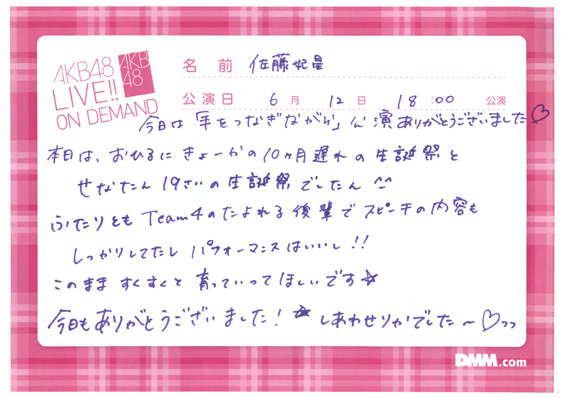 AKB48
LIVE!!
ON DEMAND
AKB
48
名 前 佐藤妃星
公演日 6月 12日 18:00 公演
今日は「手をつなぎながら」公演ありがとうございました♡
本日は、おひるに きょーかの10ヶ月遅れの生誕祭と
せなたん19さいの生誕祭でしたん^^
ふたりとも Team4のたよれる後輩で スピーチの内容も
しっかりしてたし パフォーマンスはいいし!!
このまま すくすくと 育っていってほしいです☆
今日もありがとうございました! ☆ しあわせりかでした〜♡っっ
DMM.com